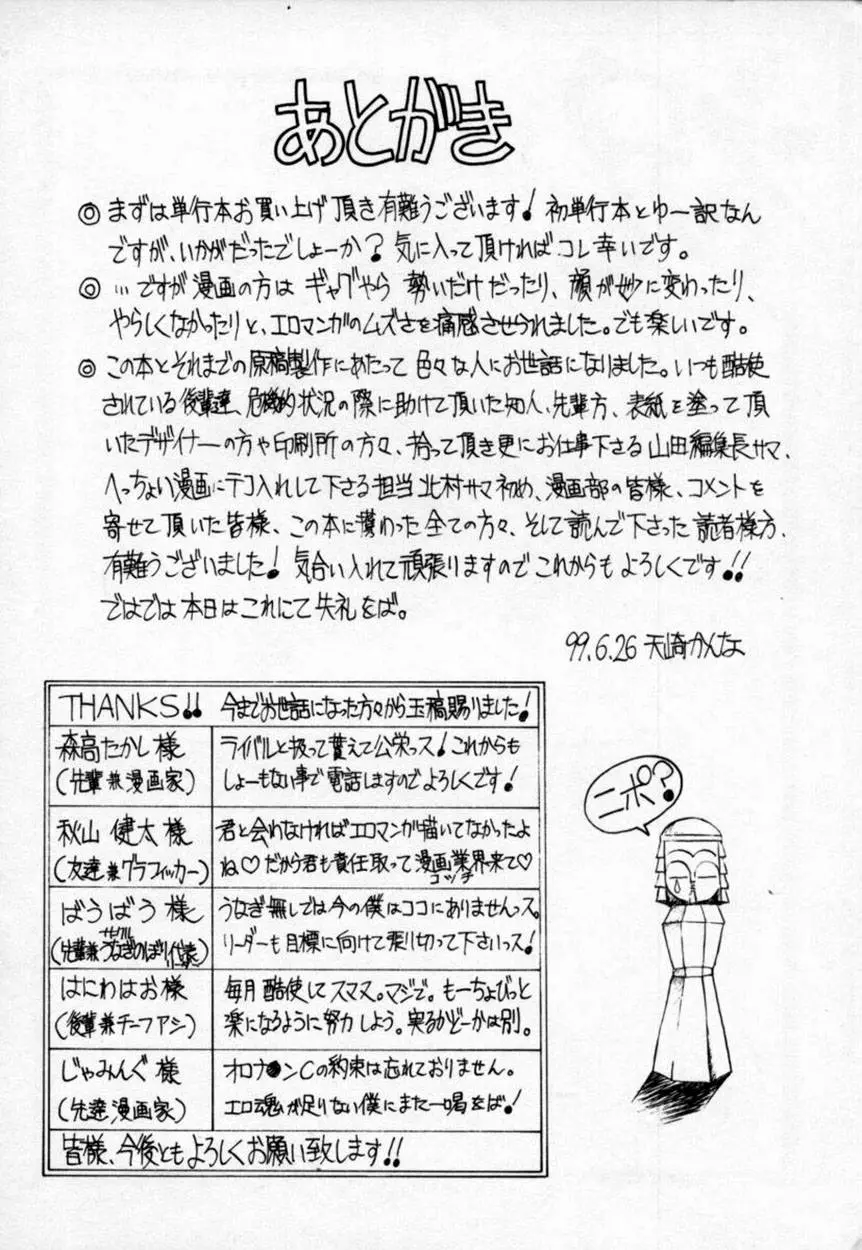 あとがき
◎ まずは単行本お買い上げ頂き有難うございます! 初単行本とゆー訳なん
ですが、いかがだったでしょーか? 気に入って頂ければコレ幸いです。
◎ …ですが漫画の方は ギャグやら 勢いだけだったり、顔が妙に変わったり、
やらしくなかったりと、エロマンガのムズさを痛感させられました。でも楽しいです。
◎ この本とそれまでの原稿製作にあたって 色々な人にお世話になりました。いつも酷使
されている後輩達、危機的状況の際に助けて頂いた知人、先輩方、表紙を塗って頂
いたデザイナーの方や印刷所の方々、拾って頂き更にお仕事下さる 山田編集長サマ、
へっちょい漫画にテコ入れして下さる担当 北村サマ初め、漫画部の皆様、コメントを
寄せて頂いた皆様、この本に携わった全ての方々、そして読んで下さった 読者様方、
有難うございました! 気合い入れて頑張りますのでこれからも よろしくです!!
ではでは本日はこれにて失礼をば。
99.6.26 天崎かんな
THANKS!! 今までお世話になった方々から玉稿賜りました!
森高たかし様
(先輩兼漫画家)
ライバルと扱って貰えて公栄っス! これからも
しょーもない事で電話しますのでよろしくです!
秋山 健太様
(友達兼グラフィッカー)
君と会わなければエロマンガ描いてなかったよ
ね♡だから君も責任取って漫画業界来て♡
コッチ
ばうばう様
サークル
(先輩兼うなぎのぼり代表)
うなぎ無しでは今の僕はココにありませんっス。
リーダーも目標に向けて乗り切って下さいっス!
はにわはお様
(後輩兼チーフアシ)
毎月酷使してスマヌ。マジで。もーちょびっと
楽になるように努力しよう。実るかどーかは別。
じゃみんぐ様
(先達漫画家)
オロナ●ンCの約束は忘れておりません。
エロ魂が足りない僕にまた一喝をば!
皆様、今後ともよろしくお願い致します!!
ニポ?